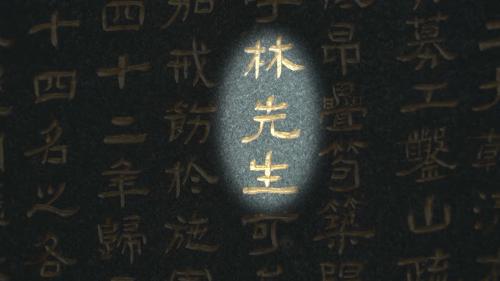 募工鑿山疏
昂疊筍築
林先生可
戒飭於施
四十二年歸
十四名之各